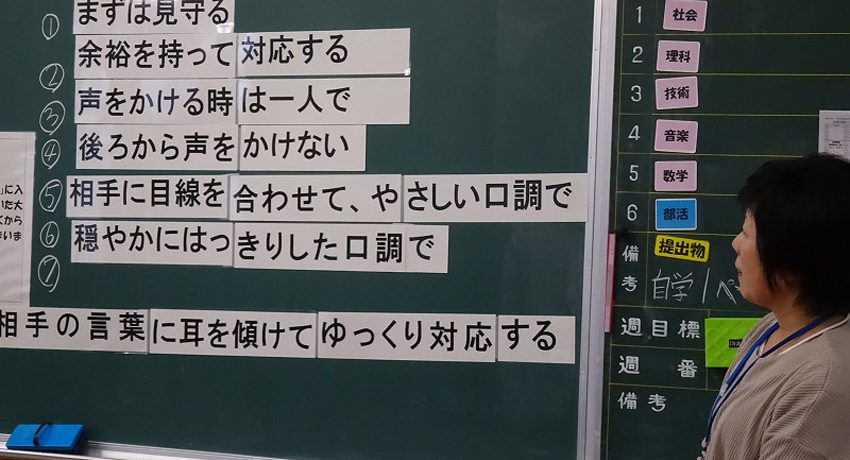 ① まずは見守る
② 余裕を持って対応する
③ 声をかける時は一人で
④ 後ろから声をかけない
⑤ 相手に目線を合わせて、やさしい口調で
⑥ 穏やかにはっきりした口調で
⑦ 相手の言葉に耳を傾けてゆっくり対応する
1 社会
2 理科
3 技術
4 音楽
5 数学
6 部活
備考 提出物
自学1ペー
週目標
週番
備考